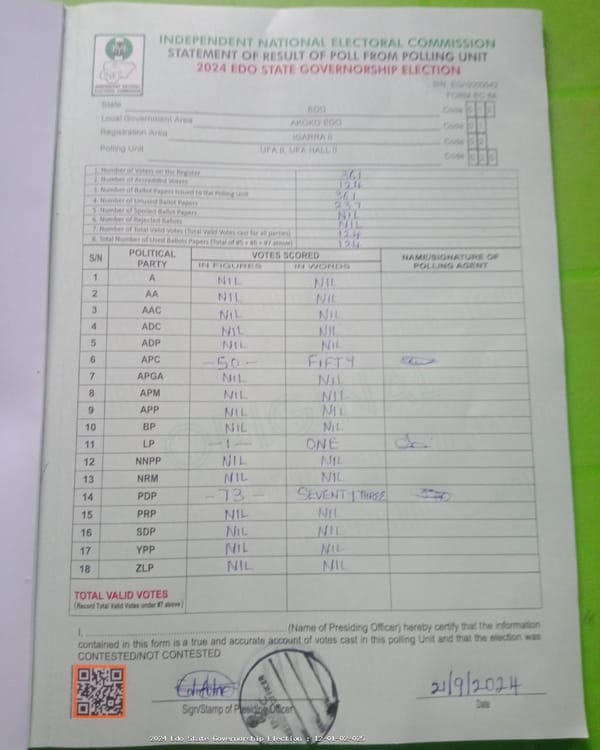 INDEPENDENT NATIONAL ELECTORAL COMMISSION
STATEMENT OF RESULT OF POLL FROM POLLING UNIT
2024 EDO STATE GOVERNORSHIP ELECTION
FORM EC 8A
State EDO Code
Local Government Area AKOKO EDO Code
Registration Area IGARRA II Code
Polling Unit UFA II, UFA HALL II Code
1. Number of Voters on the Register 361
2. Number of Accredited Voters 124
3. Number of Ballot Papers Issued to the Polling Unit 361
4. Number of Unused Ballot Papers 237
5. Number of Spoiled Ballot Papers NIL
6. Number of Rejected Ballots NIL
7. Number of Total Valid Votes (Total Valid Votes cast for all parties) 124
8. Total Number of Used Ballots Papers (Total of #5 + #6 + #7 above) 124
S/N POLITICAL PARTY VOTES SCORED NAME/SIGNATURE OF POLLING AGENT
IN FIGURES IN WORDS
1 A NIL NIL
2 AA NIL NIL
3 AAC NIL NIL
4 ADC NIL NIL
5 ADP NIL NIL
6 APC -50- FIFTY
7 APGA NIL NIL
8 APM NIL NIL
9 APP NIL NIL
10 BP NIL NIL
11 LP -1- ONE
12 NNPP NIL NIL
13 NRM NIL NIL
14 PDP -73- SEVENTY THREE
15 PRP NIL NIL
16 SDP NIL NIL
17 YPP NIL NIL
18 ZLP NIL NIL
TOTAL VALID VOTES
(Record Total Valid Votes under #7 above)
I, (Name of Presiding Officer) hereby certify that the information
contained in this form is a true and accurate account of votes cast in this polling Unit and that the election was
CONTESTED/NOT CONTESTED
21/9/2024
Sign/Stamp of Presiding Officer Date
2024 Edo State Governorship Election : 12-01-02-025